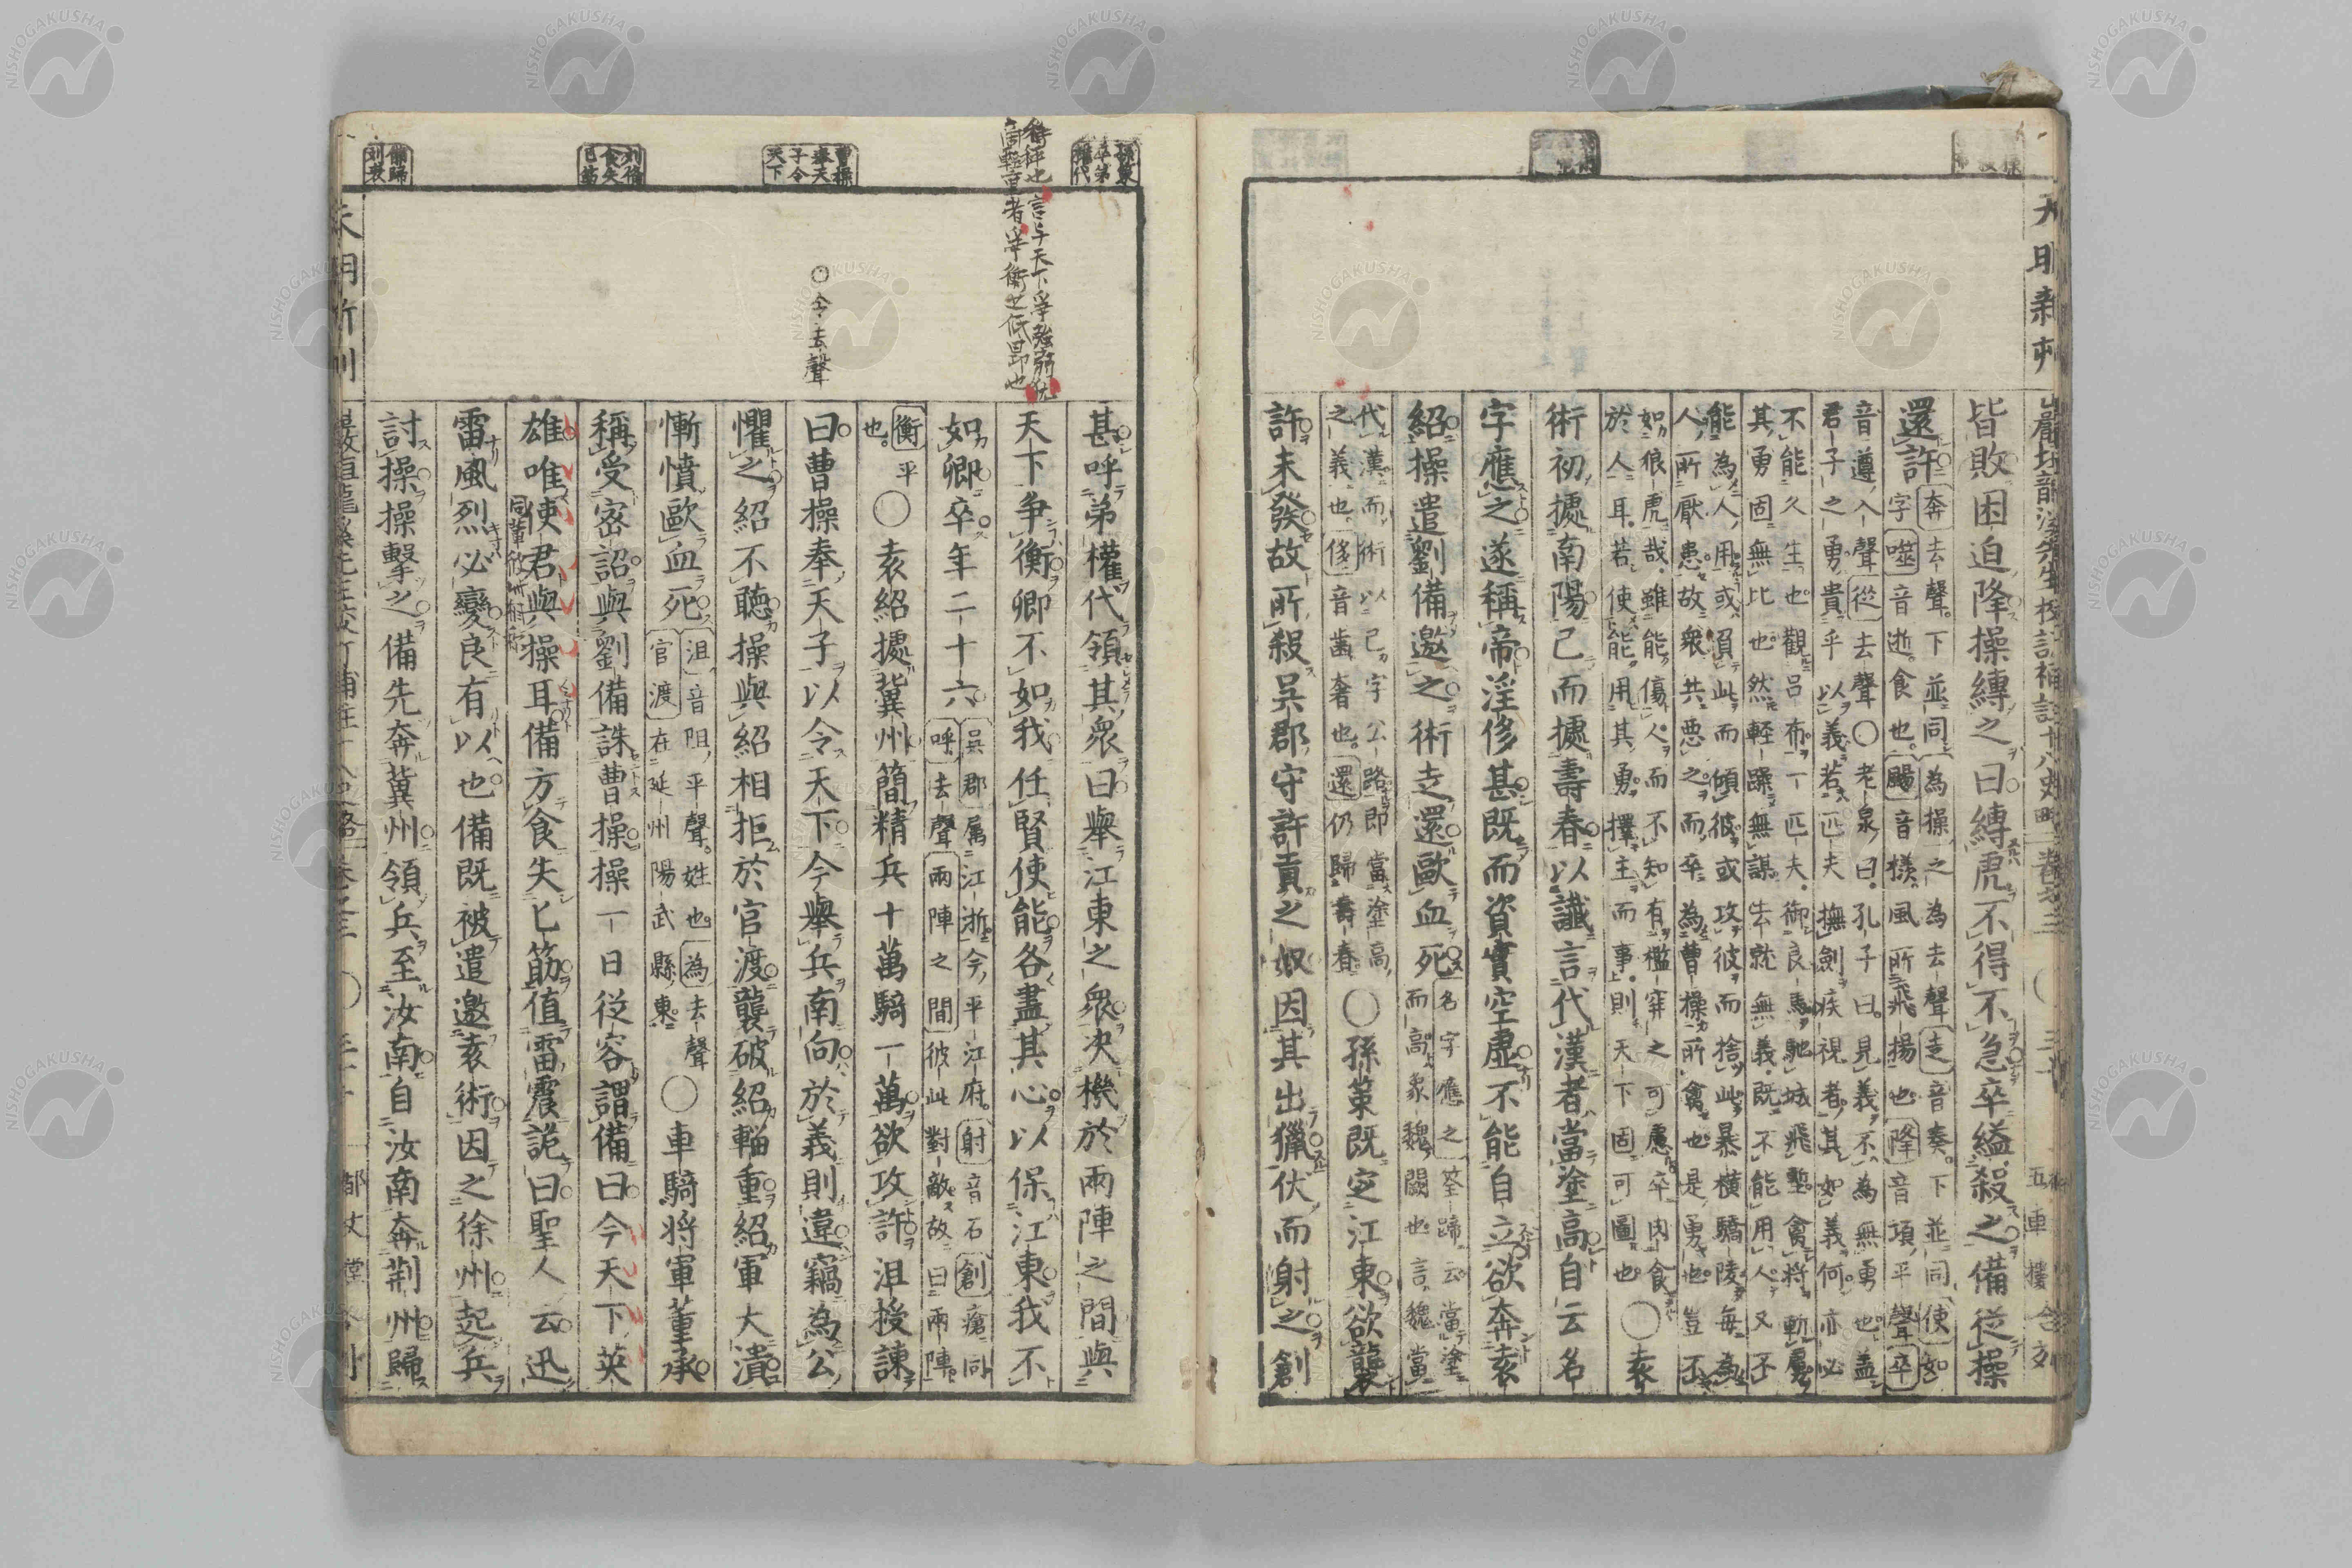 皆敗困迫降操縛之曰縛虎不得不急卒縊殺之備從操
還許
奔去聲下並同為操之為去聲走音奏下並同使如
字噬音逝食也颺音樣風所飛揚也降音項平聲卒
音遵入聲從去聲〇老泉曰孔子曰見義不為無勇也蓋
君子之勇貴乎以義若匹夫撫劍疾視者其如義何亦必
不能久生也觀呂布一匹夫御良馬馳城飛塹禽將斬
其勇固無比也然輕躁無謀去就無義既不能用人又不
能為人用或湏此而傾彼或攻彼而捨此暴橫驕陵每為
人所厭患故衆共惡之而卒為曹操所禽也是勇也豈不
如狼虎哉雖能傷人而不知有檻穽之可慮卒肉食
於人耳若使能用其勇擇主而事則天下固可圖也
〇袁
術初據南陽已而據壽春以讖言代漢者當塗高自云名
字應之遂稱帝淫侈甚既而資實空虛不能自立欲奔袁
紹操遣劉備邀之術走還歐血死
名字應之筌蹄云當塗
而高象魏闕也言魏當
代漢而術以己字公路即當塗高
之義也侈音齒奢也還仍歸壽春
〇孫策既定江東欲襲
許未發故所殺吳郡守許貢之奴因其出獵伏而射之創
孫策
卒弟
權代
曹操
奉天
子令
天下
劉備
食失
匕筯
備歸
刘表
衡秤也言與天下爭強弱猶
〇令去聲
甚呼弟權代領其衆曰舉江東之衆決機於兩陣之間與
天下爭衡卿不如我任賢使能各盡其心以保江東我不
如卿卒年二十六
吳郡屬江浙今平江府射音石創瘡同
呼去聲兩陣之間彼此對敵故曰兩陣
衡平
也
〇袁紹據冀州簡精兵十萬騎一萬欲攻許沮授諫
曰曹操奉天子以令天下今舉兵南向於義則違竊為公
懼之紹不聽操與紹相拒於官渡襲破紹輜重紹軍大潰
慚憤歐血死
沮音阻平聲姓也為去聲
官渡在延州陽武縣東
〇車騎將軍董承
稱受密詔與劉備誅曹操操一日從容謂備曰今天下英
雄唯使君與操耳備方食失匕筯值雷震詭曰聖人云迅
雷風烈必變良有以也備既被遣邀袁術因之徐州起兵
討操操擊之備先奔冀州領兵至汝南自汝南奔荊州歸